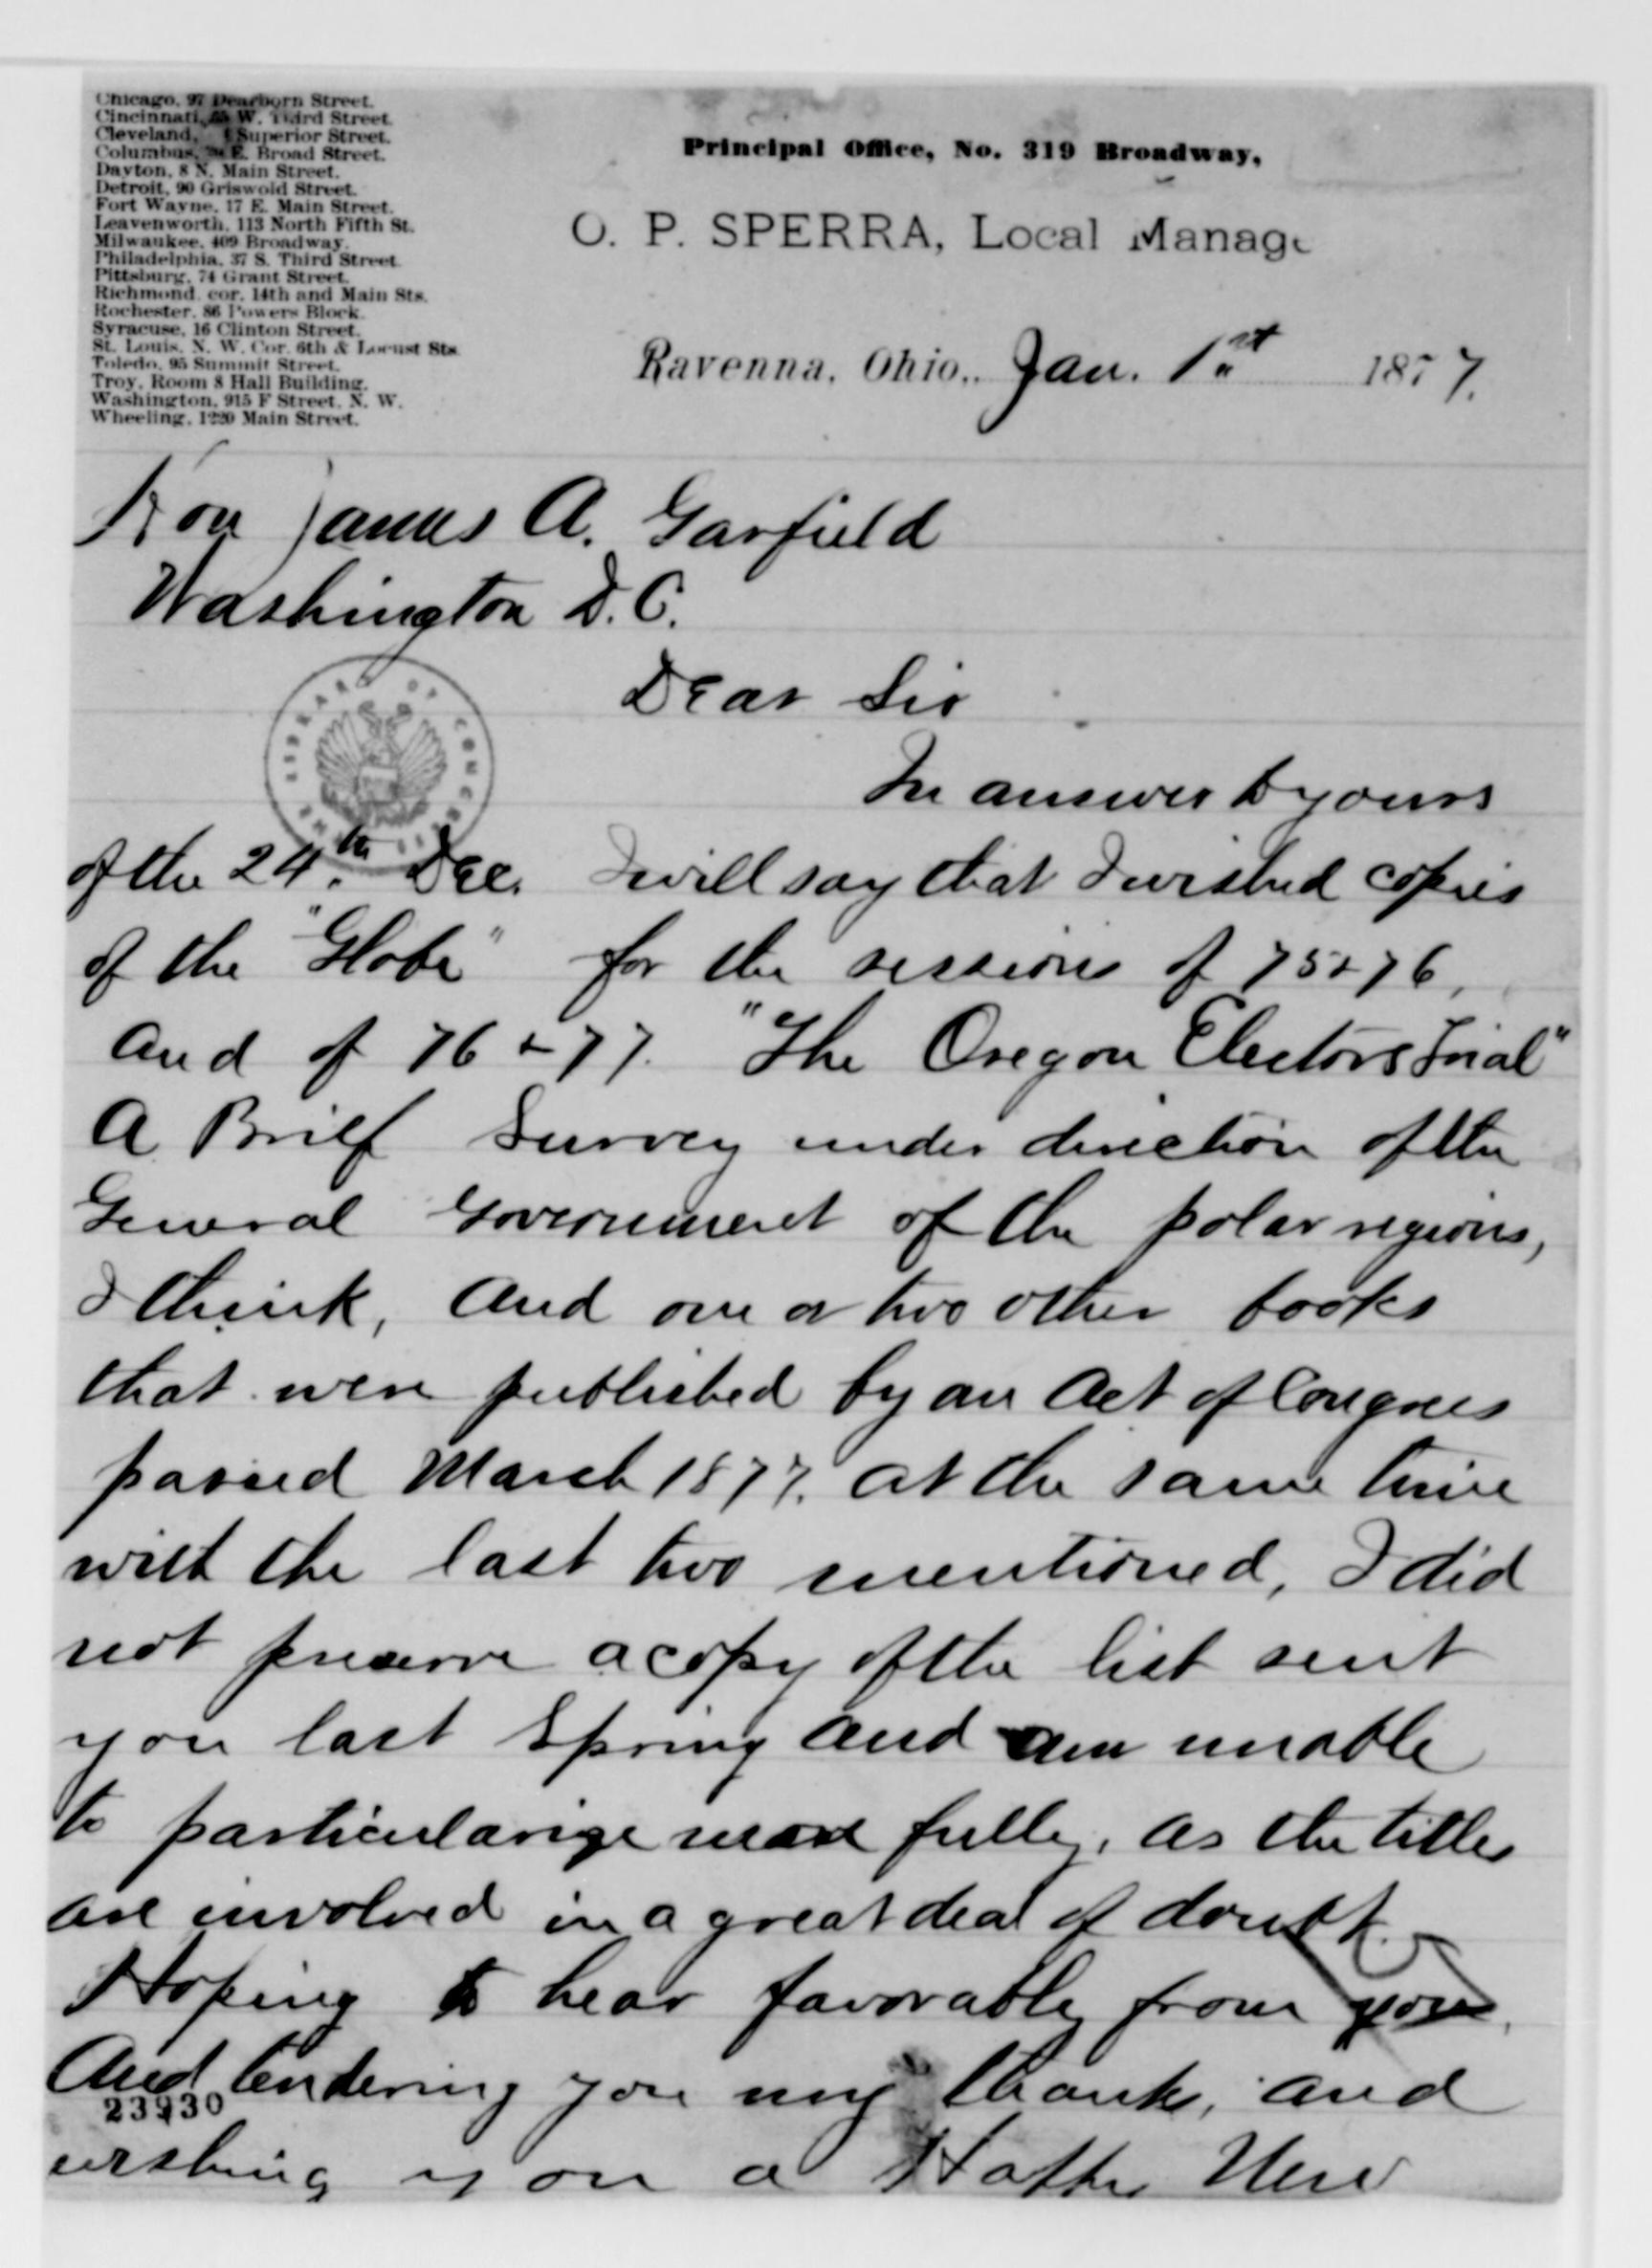 Chicago, 97 Dearborn Street.
Cincinnati, W. Third Street.
Cleveland, Superior Street.
Columbus, E. Broad Street.
Dayton, 8 N. Main Street.
Detroit, 90 Griswold Street.
Fort Wayne, 17 E. Main Street.
Leavenworth, 113 North Fifth St.
Milwaukee, 409 Broadway.
Philadelphia, 37 S. Third Street.
Pittsburg, 74 Grant Street.
Richmond, cor. 14th and Main Sts.
Rochester, 86 Powers Block.
Syracuse, 16 Clinton Street.
St. Louis, N. W. Cor. 6th & Locust Sts.
Toledo, 95 Summit Street.
Troy, Room 8 Hall Building.
Washington, 915 F Street, N. W.
Wheeling, 1220 Main Street.
Principal Office, No. 319 Broadway,
O. P. SPERRA, Local Manage
Ravenna, Ohio., Jan. 1st 1877.
Hon James A. Garfield
Washington D.C.
Dear Sir
THE LIBRARY OF CONGRESS
In answer to yours
of the 24th. Dec. I will say that I wished copies
of the "Globe" for the sessions of 75 & 76,
and of 76 & 77. "The Oregon Electors Trial"
A Brief Survey under direction of the
General Government of the polar regions,
I think, and one or two other books
that were published by an Act of Congress
passed March 1877. at the same time
with the last two mentioned, I did
not preserve a copy of the list sent
you last Spring and am unable
to particularize more fully, as the titles
are involved in a great deal of doubt.
Hoping to hear favorably from you,
And tendering you my thanks, and
wishing you a Happy New
23930